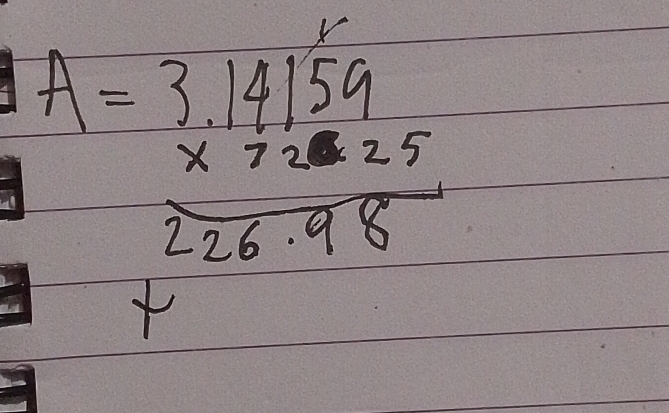 A = 3.14159
x 72.25
226.98
+